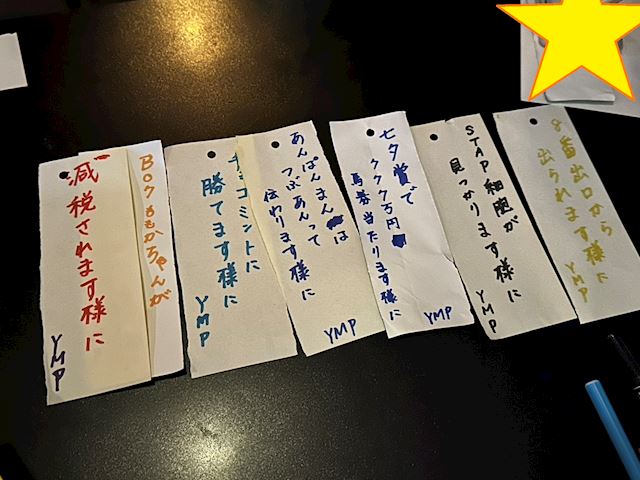 8番出口から
出られます様に
YMP
STAP細胞が
見つかります様に
YMP
七夕賞で
777万円
馬券当たります様に
YMP
あんぱんまんは
つぶあんって
伝わります様に
YMP
チョコミントに
勝てます様に
YMP
BOクももかちゃんが
減税されます様に
YMP